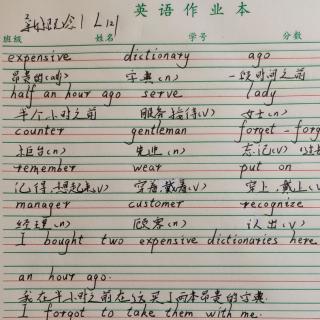 英语作业本
L12
班级 姓名 学号 分数
expensive dictionary ago
昂贵的(adj) 字典(n) 一段时间之前
half an hour ago serve lady
半个小时之前 服务,接待(v) 女士(n)
counter gentleman forget - forg
柜台(n) 先生(n) 忘记(v)
remember wear put on
记得,想起来(v) 穿着,戴着(v) 穿上,戴上(v
manager customer recognize
经理(n) 顾客(n) 认出(v)
I bought two expensive dictionaries here
an hour ago.
我在半小时之前在这买了两本昂贵的字典
I forgot to take them with me.